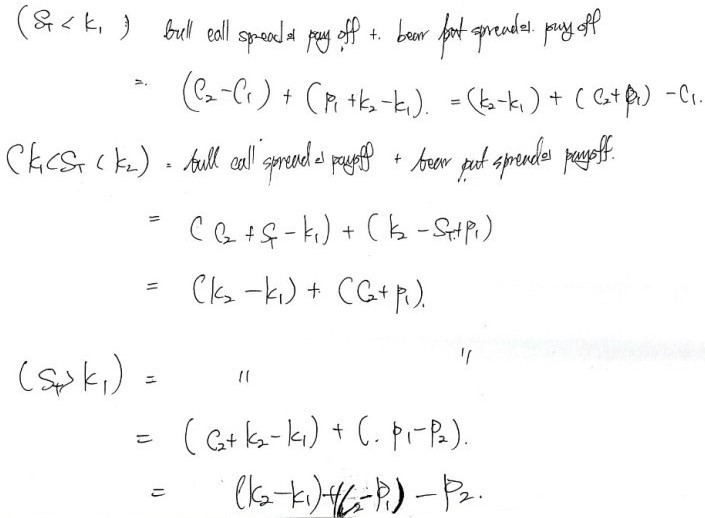 (S_T < k_1) bull call spread's pay off + bear put spread's pay off
= (C_2 - C_1) + (P_1 + k_2 - k_1). = (k_2 - k_1) + (C_2 + P_1) - C_1.
(k_1 < S_T < k_2) = bull call spread's payoff + bear put spread's payoff.
= (C_2 + S_T - k_1) + (k_2 - S_T + P_1)
= (k_2 - k_1) + (C_2 + P_1).
(S_T > k_1) = " "
= (C_2 + k_2 - k_1) + (. P_1 - P_2).
= (k_2 - k_1) + (C_2 - P_1) - P_2.